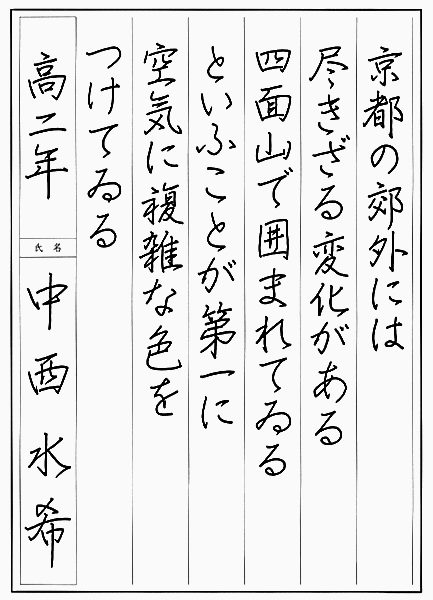 京都の郊外には
尽きざる変化がある
四面山で囲まれてゐる
といふことが第一に
空気に複雑な色を
つけてゐる
高二年
氏名
中西水希